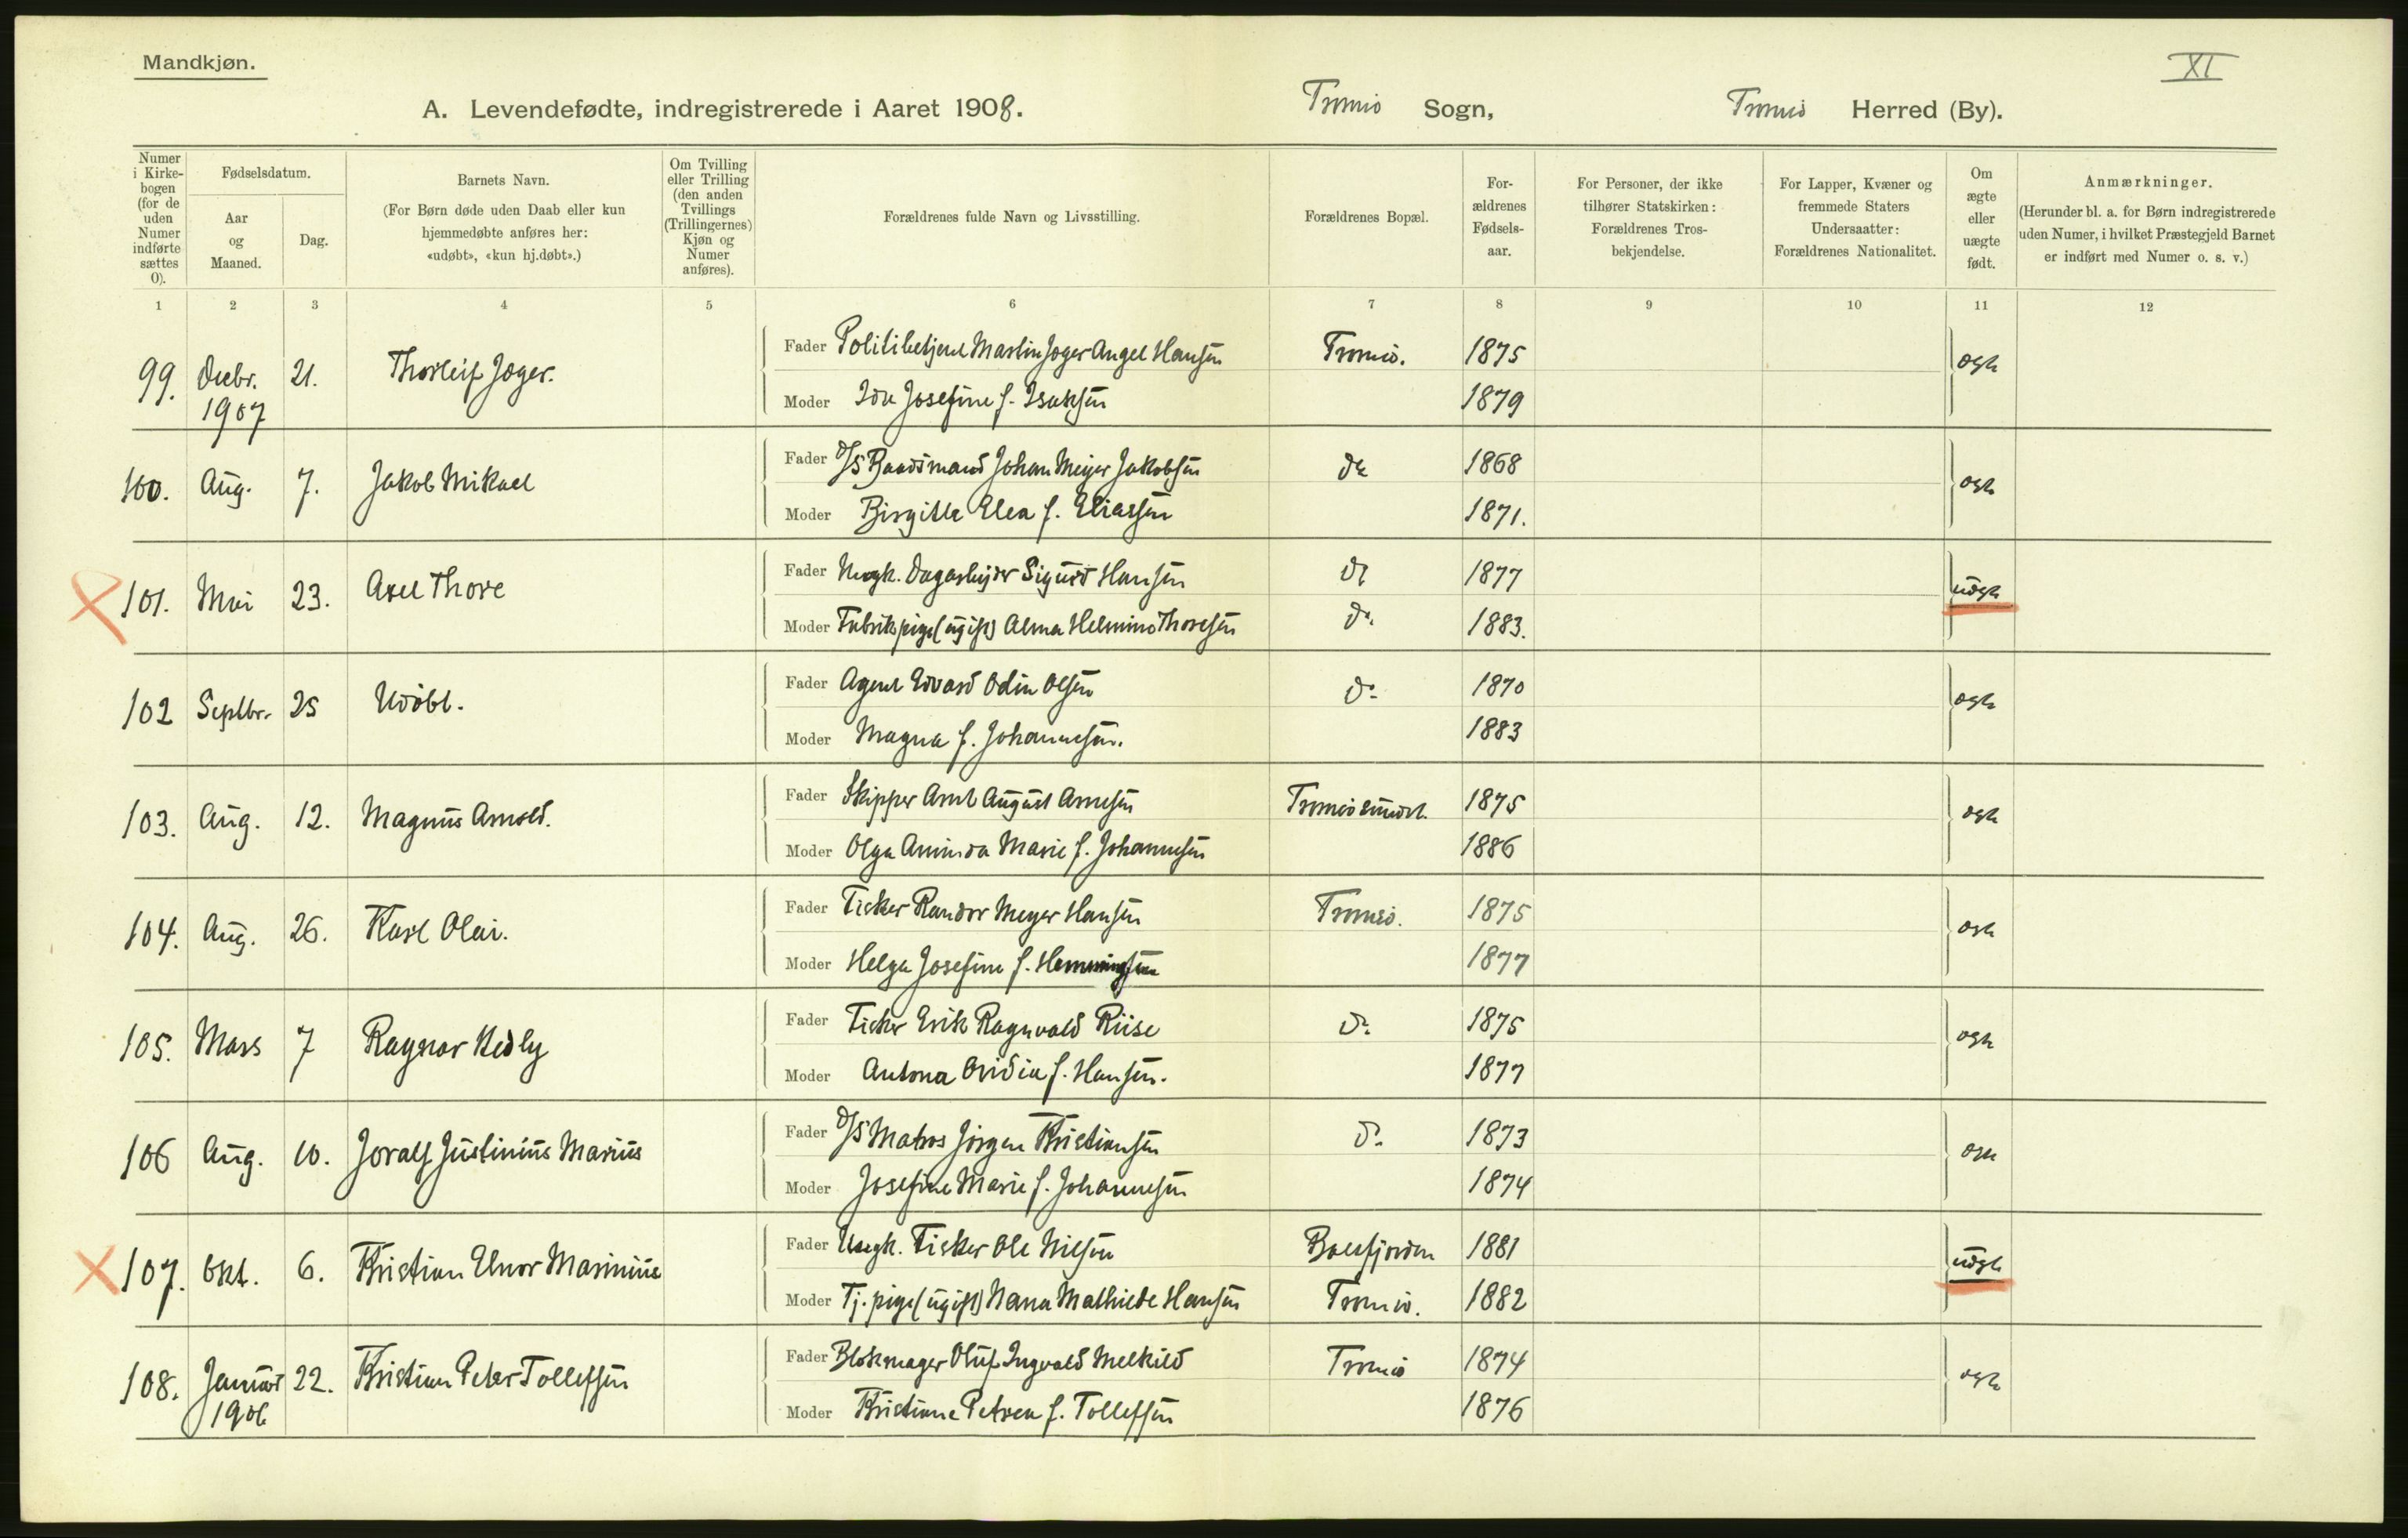 Mandkjøn.
XI
A. Levendefødte, indregistrerede i Aaret 1908. Tromsø Sogn, Tromsø Herred (By).
Numer i Kirke-bogen (for de uden Numer indførte sættes 0).
Fødselsdatum.
Aar og Maaned.
Dag.
Barnets Navn.
(For Børn døde uden Daab eller kun hjemmedøbte anføres her: «udøbt», «kun hj.døbt».)
Om Tvilling eller Trilling (den anden Tvillings (Trillingernes) Kjøn og Numer anføres).
Forældrenes fulde Navn og Livsstilling.
Forældrenes Bopæl.
For-ældrenes Fødsels-aar.
For Personer, der ikke tilhører Statskirken: Forældrenes Tros-bekjendelse.
For Lapper, Kvæner og fremmede Staters Undersaatter: Forældrenes Nationalitet.
Om ægte eller uægte født.
Anmærkninger.
(Herunder bl. a. for Børn indregistrerede uden Numer, i hvilket Præstegjeld Barnet er indført med Numer o. s. v.)
1 2 3 4 5 6 7 8 9 10 11 12
Fader Politibetjent Martin Joger Angel Hansen Tromsø. 1875
99. Decbr. 1907 21. Thorleif Joger. ægte
Moder Ida Josefine f. Isaksen 1879
Fader D/S Baadsmand Johan Meyer Jakobsen do 1868
100. Aug. 7. Jakob Mikael ægte
Moder Birgitte Elea f. Eliassen 1871.
Fader Uægt. Dagarbejder Sigurd Hansen do 1877
101. Mai 23. Axel Thore uægte
Moder Fabrikspige (ugift) Alma Helmine Thoresen do. 1883.
Fader Agent Edvard Odin Olsen do 1870
102 Septbr. 25 Udøbt. ægte
Moder Magna f. Johannesen. 1883
Fader Skipper Arnt August Arnesen Tromsøsundet. 1875
103. Aug. 12. Magnus Arnold. ægte
Moder Olga Aminda Marie f. Johannesen 1886
Fader Fisker Randor Meyer Hansen Tromsø. 1875
104. Aug. 26. Karl Olai. ægte
Moder Helga Josefine f. Hemmingsen 1877
Fader Fisker Erik Ragnvald Riise do. 1875
105. Mars 7 Ragnar Hedly ægte
Moder Antona Ovidia f. Hansen. 1877
Fader D/S Matros Jørgen Kristiansen do. 1873
106 Aug. 10. Joralf Justinius Marius ægte
Moder Josefine Marie f. Johannesen 1874
Fader Uægt. Fisker Ole Nilsen Balsfjorden 1881
107. Okt. 6. Kristian Elnor Marinius uægte
Moder Tj.pige (ugift) Nana Mathilde Hansen Tromsø. 1882
Fader Blokmager Oluf Ingvald Melkild Tromsø 1874
108. Januar 1906 22. Kristian Peter Tollefsen ægte
Moder Kristiane Petrea f. Tollefsen 1876